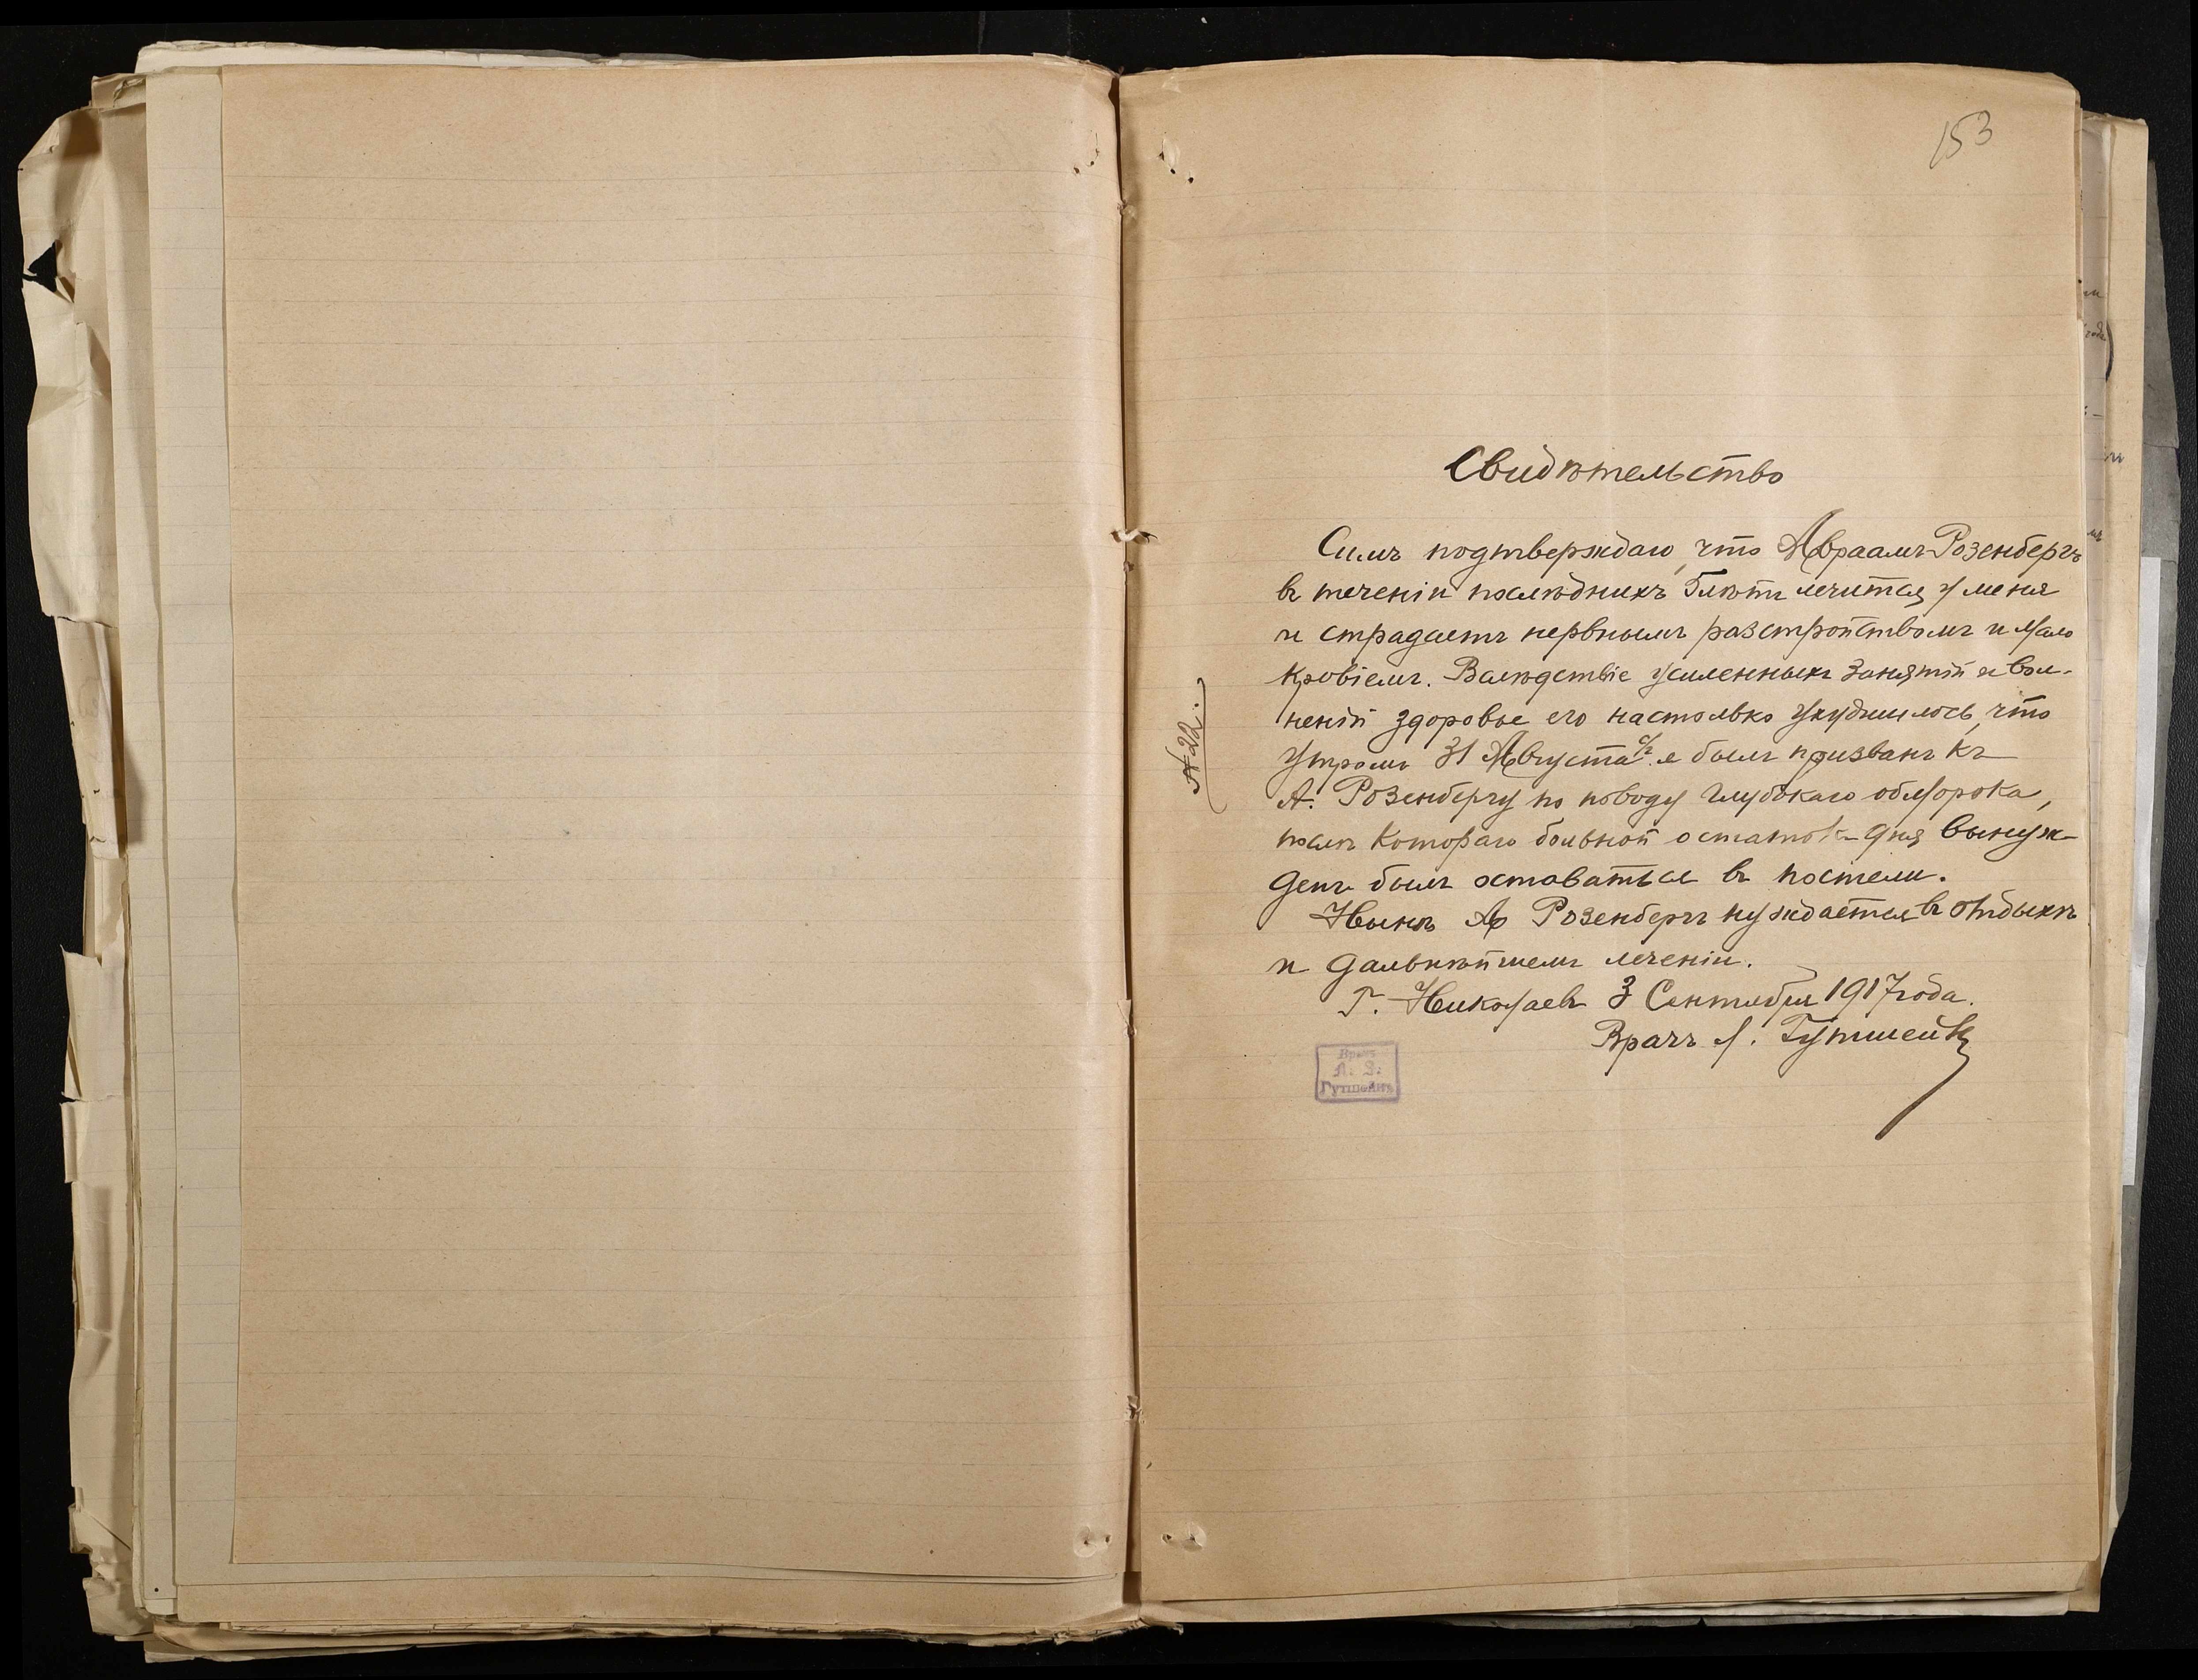 153
Свидѣтельство
Симъ подтверждаю, что Авраамъ Розенбергъ
въ теченіи послѣднихъ 5 лѣтъ лечится у меня
и страдаетъ нервнымъ разстройствомъ и мало
кровіемъ. Вслѣдствіе усиленныхъ занятій и вол-
неній здоровье его настолько ухудшилось, что
утромъ 31 Августа с/г я былъ призванъ къ
А. Розенбергу по поводу глубокаго обморока,
послѣ котораго больной остатокъ дня вынуж-
денъ былъ оставаться въ постели.
Нынѣ А Розенбергъ нуждается въ отдыхѣ
и дальнѣйшемъ леченіи.
Г. Николаевъ 3 Сентября 1917 года.
Врачъ Л. Гутшейн
Врачъ
Л. З.
Гутшейнъ
№ 22.